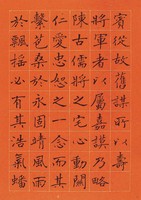 賓從故舊謀所以壽
將軍者以屬嘉謨乃略
陳古儒將之宅心動關
仁愛忠恕之一念而其
苞桑於永固靖風雨
於飄搖必有其浩氣蟠